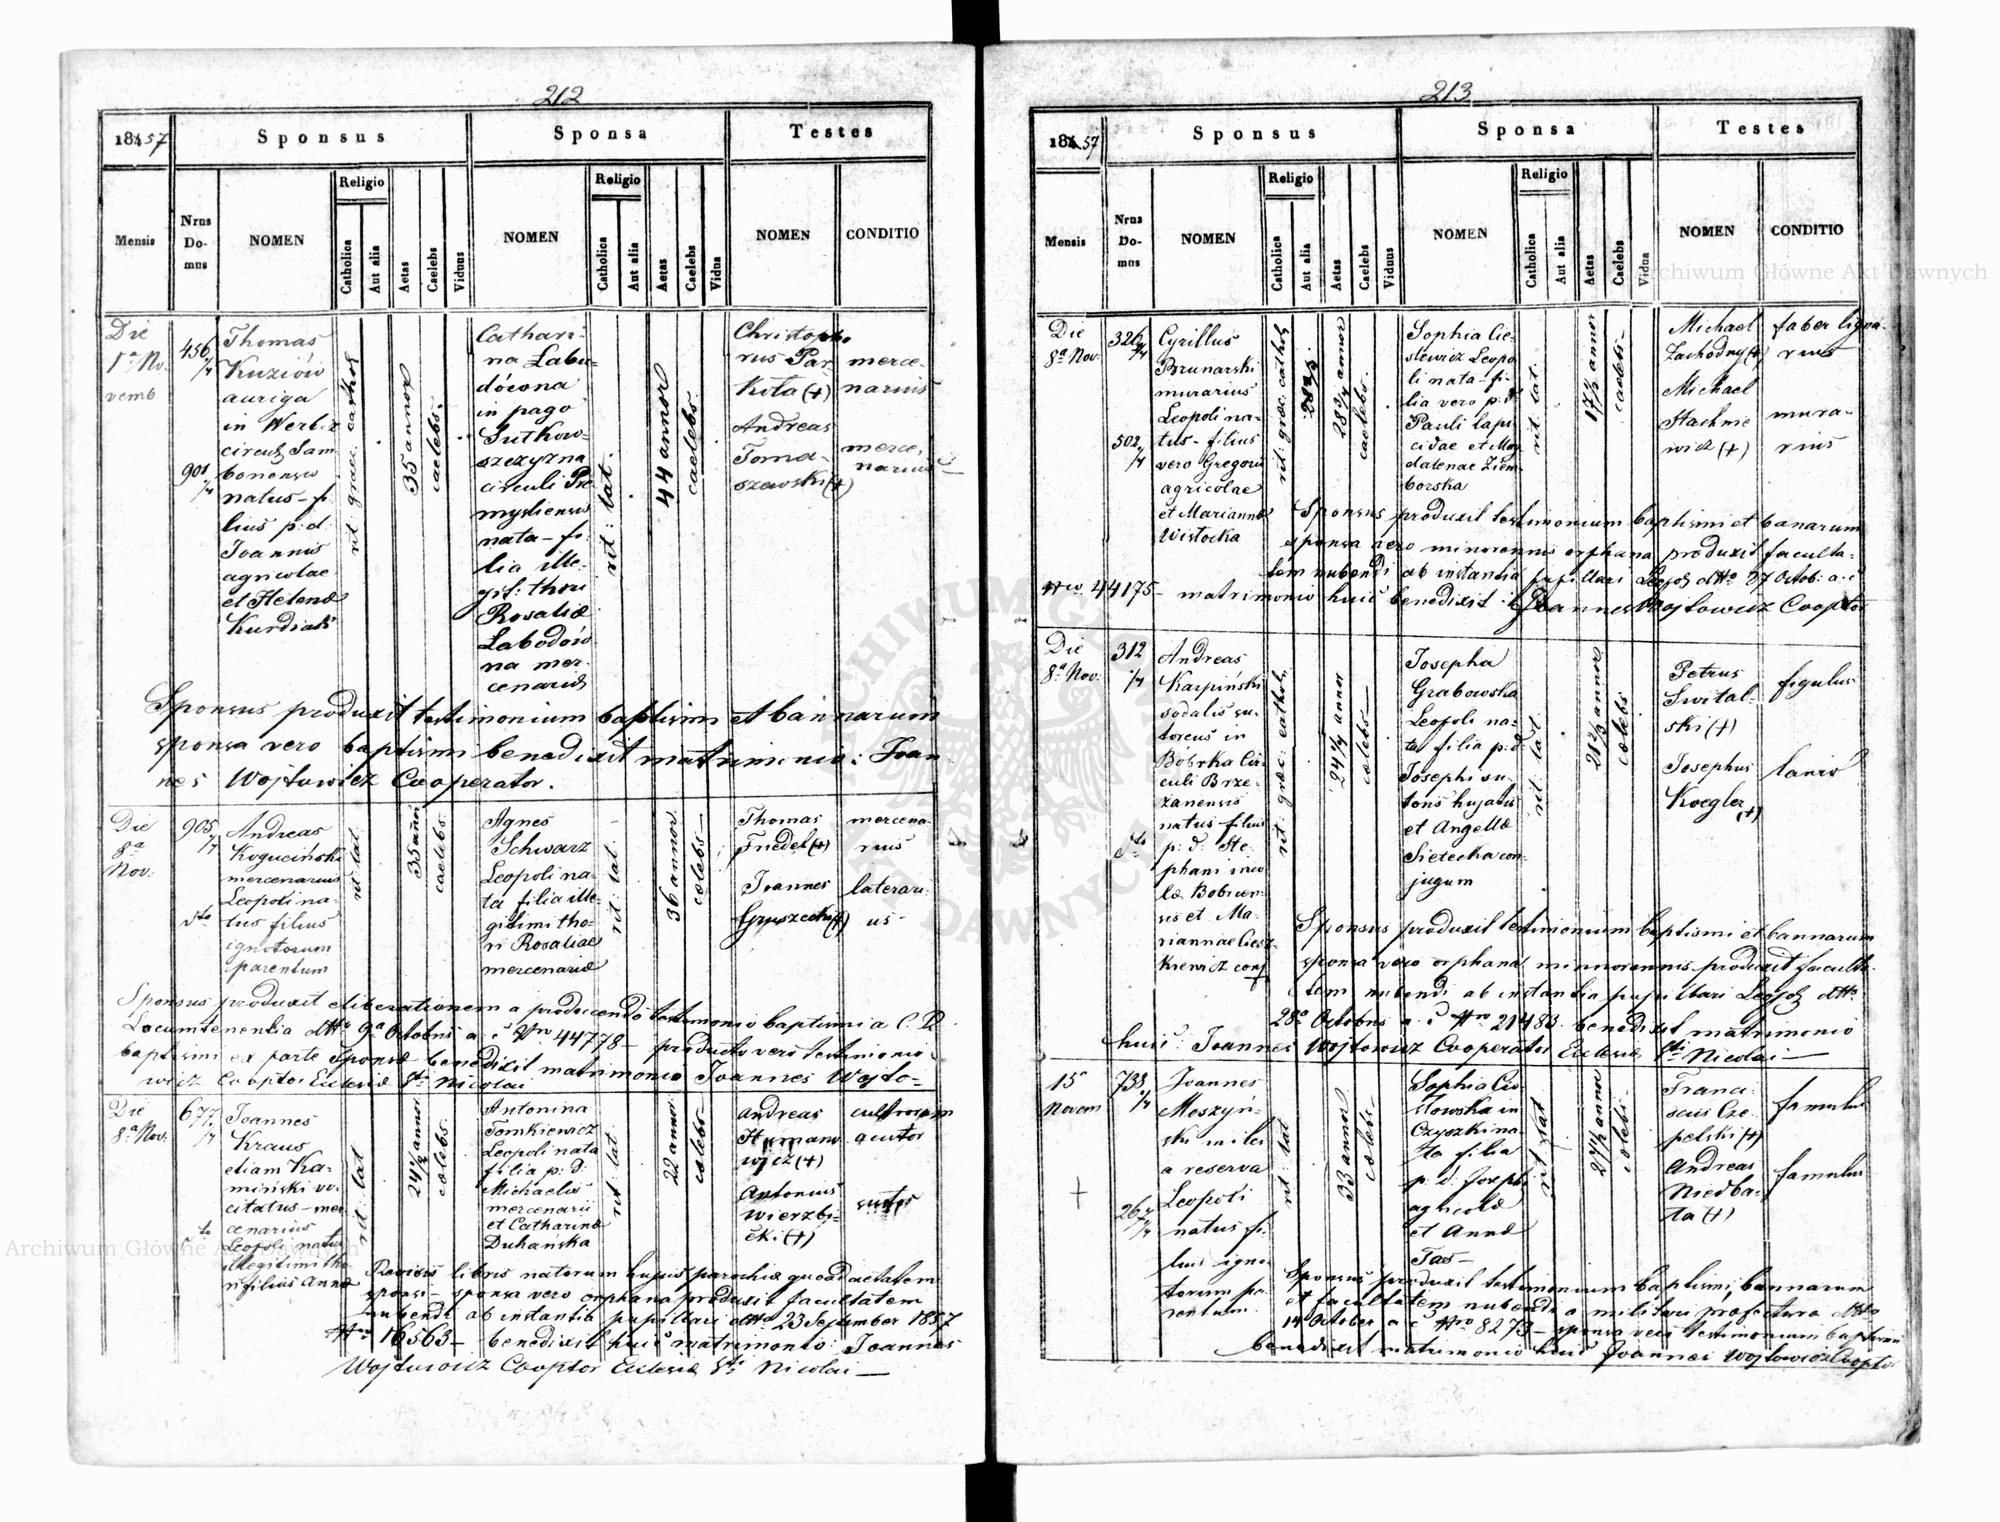 212
1857
Sponsus
Sponsa
Testes
Mensis
Nrus Domus
NOMEN
Religio
Catholica
Aut alia
Aetas
Caelebs
Viduus
NOMEN
Religio
Catholica
Aut alia
Aetas
Caelebs
Vidua
NOMEN
CONDITIO
Die
1a No.
vemb
456
/4
901
/4
Thomas
Kuziów
auriga
in Werbiz
circuli Sam
boriensis
natus - fi
lius p: d:
Joannis
agricolae
et Helenae
Kurdiak
rit graec. cathol
35 annor
caelebs.
Cathari-
na Labu-
dócona
in pago
Sutkow-
szczyzna
circuli Pre
mysliensis
nata - fi-
lia ille-
git: thori
Rosaliae
Labodów
na mer-
cenariae
rit: lat.
44 annor
caelebs.
Christopho
rus Par
Kota (+)
merce-
narius
Andreas
Toma-
szewski (+)
merce-
narius
Sponsus produxit testimonium baptismi et bannarum
sponsa vero baptismi benedixit matrimonio: Joan
nes Wojtowicz Cooperator.
Die
8a
Nov:
905
/4
dto
Andreas
Koguciński
mercenarius
Leopoli na-
tus filius
ignotorum
parentum
rit: lat
35 annor
caelebs.
Agnes
Schwarz
Leopoli na-
ta filia ille-
gitimi tho-
ri Rosaliae
mercenariae
rit: lat.
36 annor
caelebs -
Thomas
Friedel (+)
mercena-
rius
Joannes
Gruszecki (+)
laterari-
us -
Sponsus produxit eliberationem a producendo testimonio baptismi a C. R.
Locumtenentia dtto 9a Octobris a: c: Nro 44778 - producto vero testimonio
baptismi ex parte Sponsae benedixit matrimonio Joannes Wojto-
wicz Cooptor Eclesiae Sti Nicolai
Die
8a Nov:
677
/4
dto
Joannes
Kraus
etiam Ka-
miński vo-
citatus - mer
cenarius
Leopoli natus
illegitimi tho
ri filius Annae
rit: lat
24 1/2 annor
caelebs.
Antonina
Tomkiewicz
Leopoli nata
filia p: d:
Michaelis
mercenarii
et Catharinae
Duhańska
rit: lat
22 annor
caelebs -
Andreas
wicz (+)
cultrorum
acutor
Antonius
Wierzbi-
cki (+)
sutor
Revisis libris natorum hujus parochiae quoad aetatem
sponsi - sponsa vero orphana produxit facultatem
nubendi ab instantia pupillari dtto 23 September 1857
Nro 16563 - benedixit huic matrimonio: Joannes
Wojtowicz Cooptor Eclesiae Sti Nicolai -
213
1857
Sponsus
Sponsa
Testes
Mensis
Nrus Domus
NOMEN
Religio
Catholica
Aut alia
Aetas
Caelebs
Viduus
NOMEN
Religio
Catholica
Aut alia
Aetas
Caelebs
Vidua
NOMEN
CONDITIO
Die
8a Nov:
326
/4
502
/4
Cyrillus
Brunarski
murarius
Leopoli na-
tus - filius
vero Gregorii
agricolae
et Mariannae
Wistocka
rit: graec. cathol.
28 3/4 annor
caelebs.
Sophia Cie-
slewicz Leopo
li nata - fi-
lia vero p: d:
Pauli lapi-
cidae et Mag
dalenae Ziem
borska
rit: lat.
17 1/2 annor
caelebs -
Michael
Zachodny (+)
faber ligna-
rius
Michael
Stachnie
wicz (+)
mura-
rius
Sponsus produxit testimonium baptismi et banarum
sponsa vero minorennis orphana produxit faculta-
tem nubendi ab instantia pupillari Leopol dtto 27 Octob: a: c:
Nro 44175 - matrimonio huic benedixit: Joannes Wojtowicz Cooptor
Die
8a Nov:
312
/4
dto
Andreas
Karpiński
sodalis su-
torius in
Bóbrka Cir-
culi Brze-
zanensis
natus filius
p: d: Ste-
phani inco
lae Bobrcen-
sis et Ma-
riannae Ciesz
kiewicz conj
rit: graec: cathol:
24 1/4 annor
caelebs -
Josepha
Grabowska
Leopoli na-
ta filia p: d:
Josephi su-
toris hujatis
et Angelae
Sietecka con
jugum
rit: lat.
21 2/3 annor
caelebs
Petrus
Swital-
ski (+)
figulus
Josephus
Koegler
(+)
lanio
Sponsus produxit testimonium baptismi et bannarum
sponsa vero orphana minorennis produxit faculta
tem nubendi ab instantia pupillari Leopol dtto
28a Octobris a: c: Nro 21483 benedixit matrimonio
huic: Joannes Wojtowicz Cooperator Eclesiae Sti Nicolai -
15
Novem
+
738
/4
267
/4
Joannes
Moszyń-
ski miles
a reserva
Leopoli
natus fi-
lius igno-
torum pa-
rentum
rit: lat
33 annor
caelebs -
Sophia Cio
stowska in
Czyszki na-
ta filia
p: d: Josephi
agricolae
et Annae
Tas -
rit: lat
21 1/2 annor
caelebs -
Franci-
scus Cze-
pelski (+)
famulus
Andreas
Niedba-
ta (+)
famulus
Sponsus produxit testimonium baptismi, bannarum
et facultatem nubendi a militari profectura dtto
14 October a: c: Nro 8273 - sponsa vero testimonium baptismi
benedixit matrimonio huic Joannes Wojtowicz Cooptor
Archiwum Główne Akt Dawnych
Archiwum Główne Akt Dawnych
ARCHIWUM GŁÓWNE AKT DAWNYCH